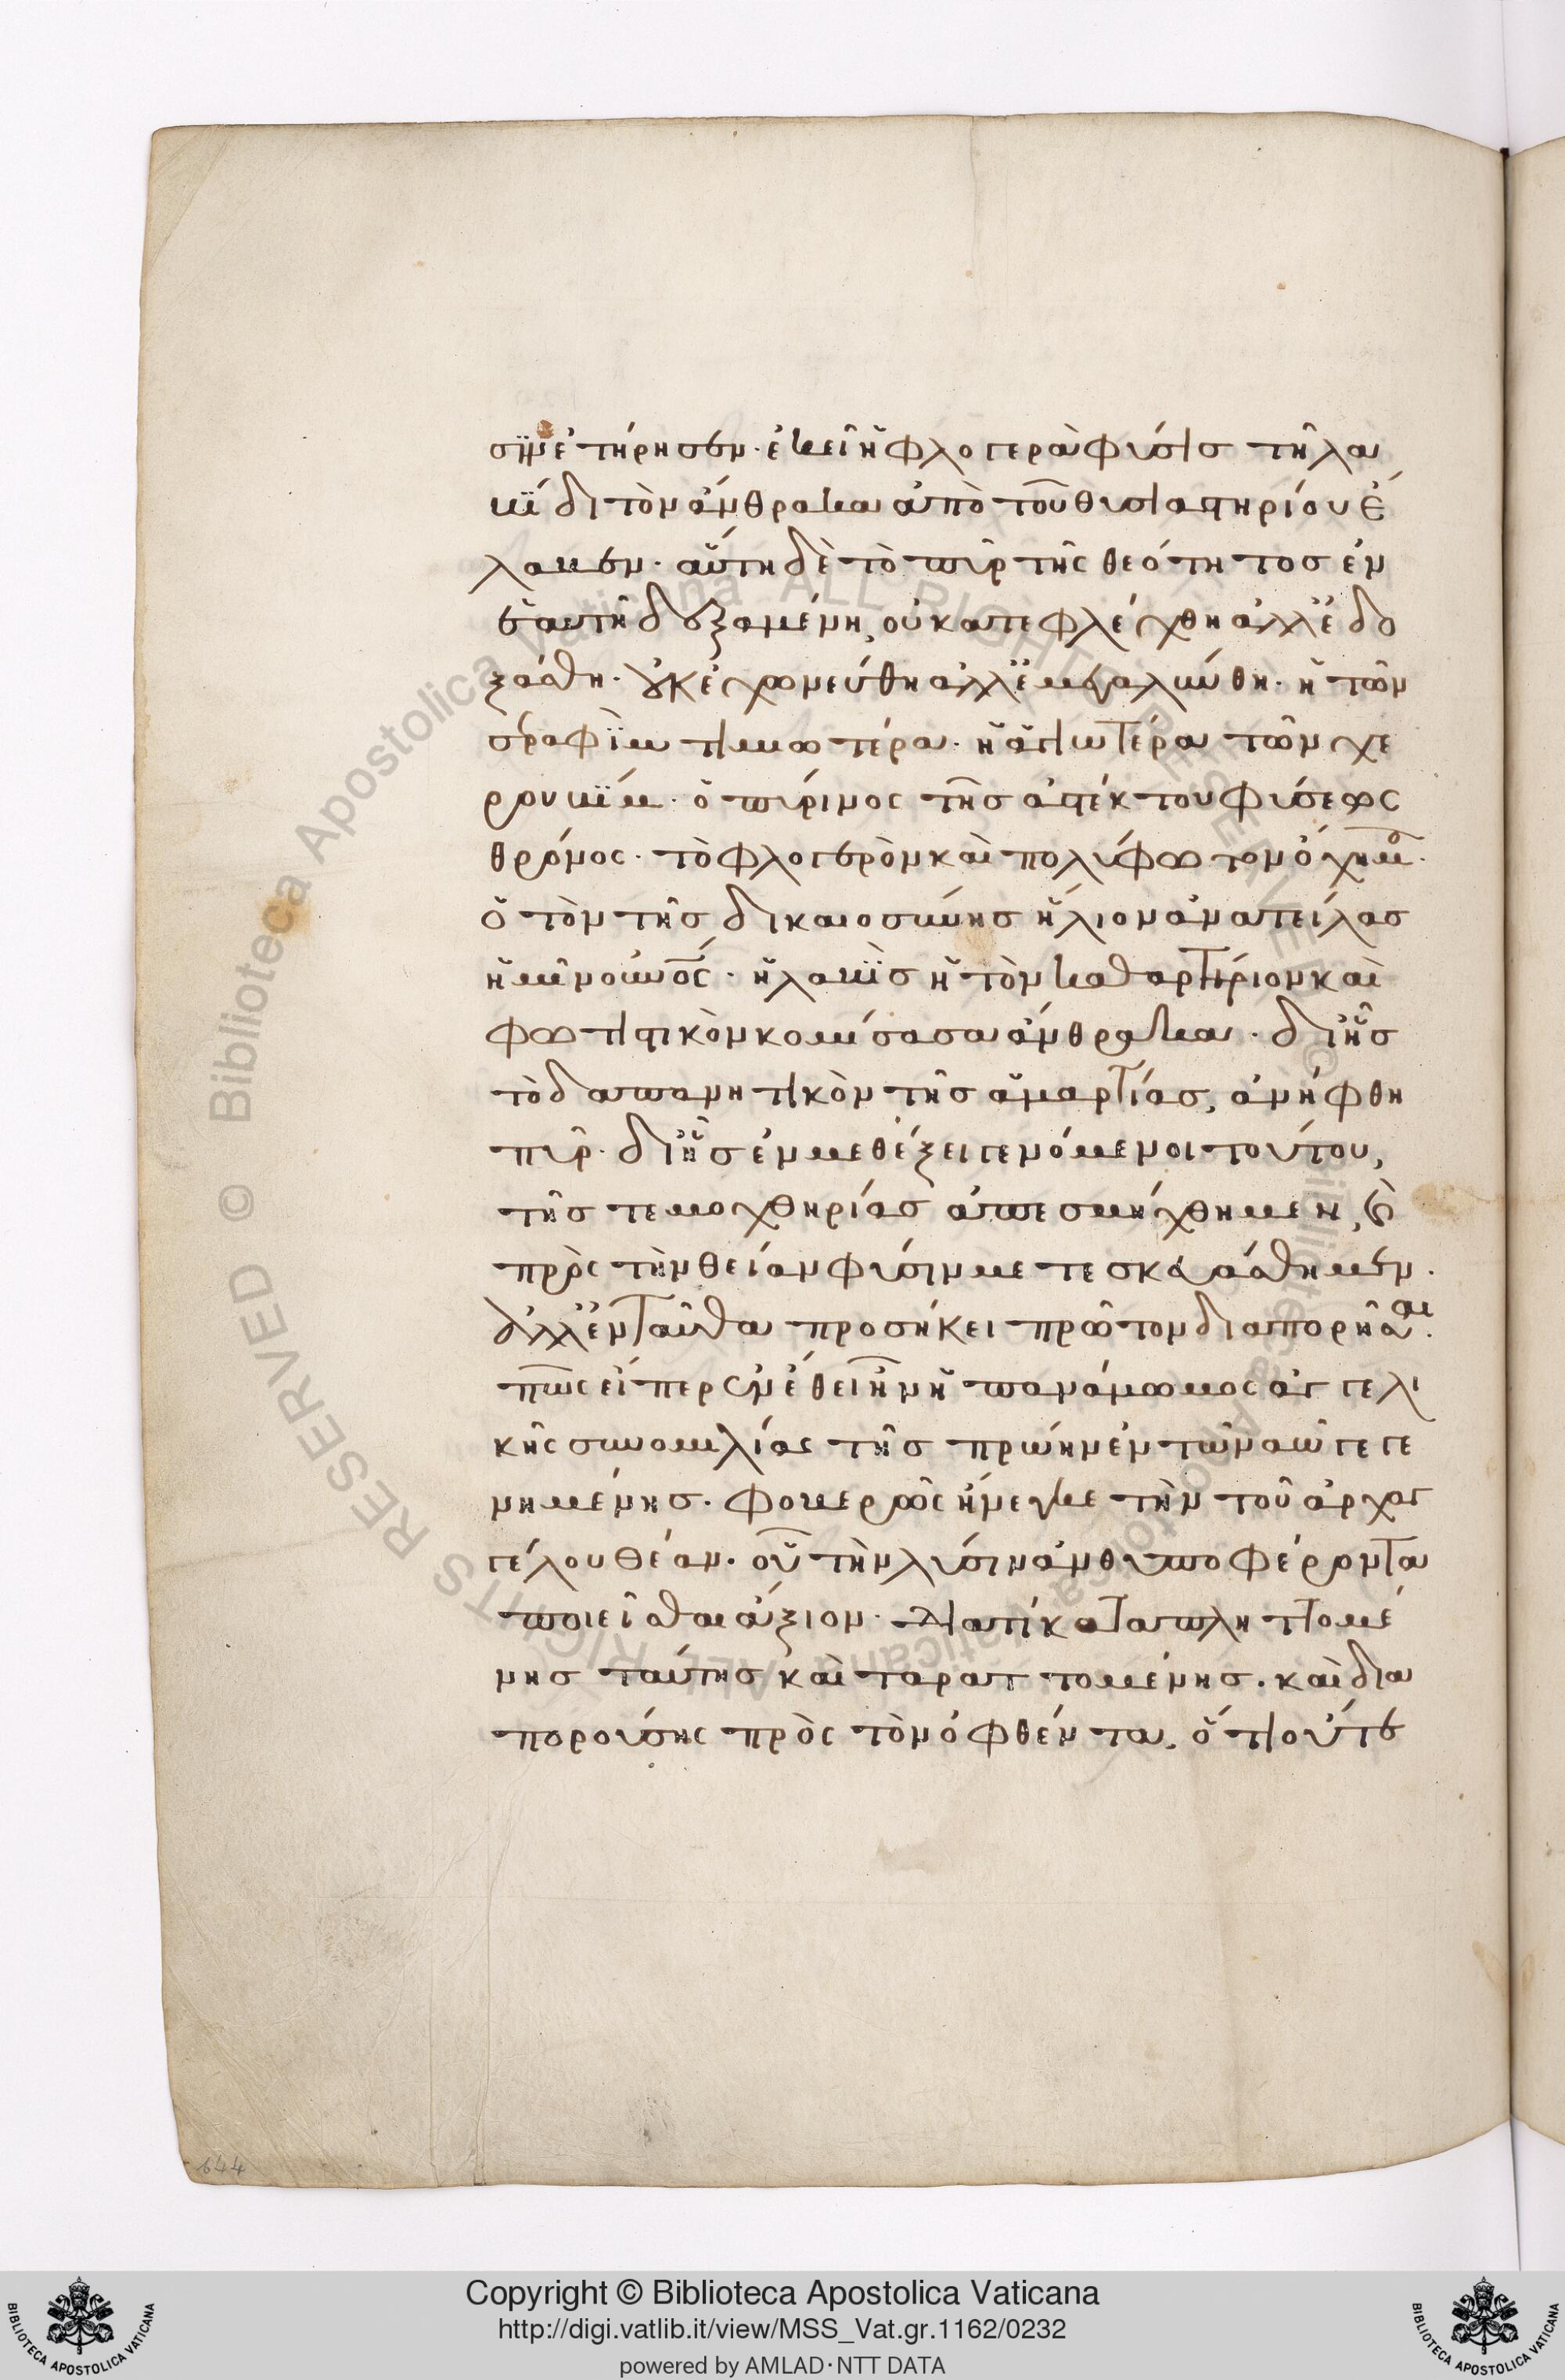 σιν ἐτήρησεν· ἐκεῖ ἡ φλογερὰ φύσις τῆ λα
βίδι τὸν ἄνθρακα ἀπὸ τοῦ θυσιαστηρίου ἔ
λαβεν· αὕτη δὲ τὸ πῦρ τῆς θεότητος ἐν
ἑαυτῆ δεξαμένη, οὐ κατεφλέχθη ἀλλ' ἐδο
ξάσθη· οὐκ ἐχωνεύθη ἀλλ' ἐμεγαλύνθη· ἡ τῶν
σεραφὶμ τιμιωτέρα· ἡ ἁγιωτέρα τῶν χε
ρουβίμ· ὁ πύρινος τῆς ἀστέκτου φύσεως
θρόνος· τὸ φλογερὸν καὶ πολύφωτον ὄχημα·
ὁ τὸν τῆς δικαιοσύνης ἥλιον ἀνατείλας
ἡμῖν οὐνος· ἡ λαβὶς ἡ τὸν καθαρτήριον καὶ
φωτιστικὸν κομίσασα ἄνθρακα· δι' ἧς
τὸ δαπανητικὸν τῆς ἁμαρτίας, ἀνήφθη
πῦρ· δι' ἧς ἐν μεθέξει γενόμενοι τούτου,
τῆς τε μοχθηρίας ἀπεσμήχθημεν, καὶ
πρὸς τὴν θείαν φύσιν μετεσκευάσθημεν·
ἀλλ' ἐνταῦθα προσήκει πρῶτον διαπορῆσαι·
πῶς εἴπερ ἐν ἔθει ἦν ἡ πανάμωμος ἀγγελι
κῆς συνομιλίας τῆς πρώην ἐν τῶ ναῶ γεγε
νημένης· φοβερῶς ἤνεγκε τὴν τοῦ ἀρχαγ
γέλου θέαν· οὗ τὴν λύσιν ἀνθυποφέροντα
ποιεῖσθαι ἄξιον· διατί καταπληττομέ
νης ταύτης καὶ ταραττομένης· καὶ δια
πορούσης πρὸς τὸν ὀφθέντα, ὅτι οὔτε
644
Copyright © Biblioteca Apostolica Vaticana
http://digi.vatlib.it/view/MSS_Vat.gr.1162/0232
powered by AMLAD·NTT DATA
BIBLIOTECA APOSTOLICA VATICANA
BIBLIOTECA APOSTOLICA VATICANA